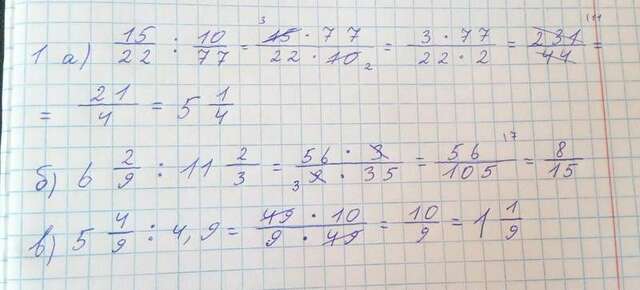 1 а) 15/22 : 10/77 = 15 · 77 / 22 · 10 = 3 · 77 / 22 · 2 = 231/44 =
= 21/4 = 5 1/4
б) 6 2/9 : 11 2/3 = 56 · 3 / 9 · 35 = 56/105 = 8/15
в) 5 4/9 : 4,9 = 49 · 10 / 9 · 49 = 10/9 = 1 1/9